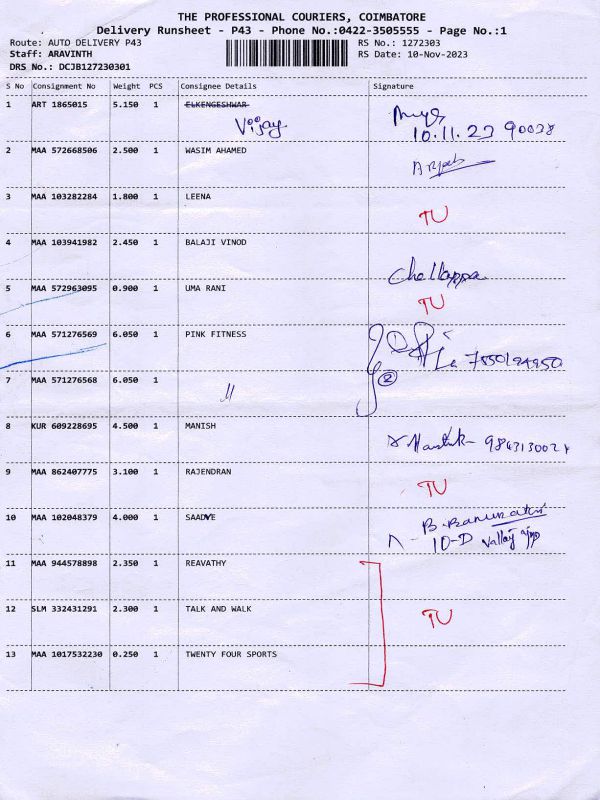 THE PROFESSIONAL COURIERS, COIMBATORE
Delivery Runsheet - P43 - Phone No.:0422-3505555 - Page No.:1
Route: AUTO DELIVERY P43 RS No.: 1272303
Staff: ARAVINTH RS Date: 10-Nov-2023
DRS No.: DCJB127230301
S No Consignment No Weight PCS Consignee Details Signature
1 ART 1865015 5.150 1 ELKENGESHWAR
Vijay
10.11.23 90038
2 MAA 572668506 2.500 1 WASIM AHAMED
3 MAA 103282284 1.800 1 LEENA
TU
4 MAA 103941982 2.450 1 BALAJI VINOD
Chellappa
5 MAA 572963095 0.900 1 UMA RANI
TU
6 MAA 571276569 6.050 1 PINK FITNESS
7550194950
7 MAA 571276568 6.050 1 11
2
8 KUR 609228695 4.500 1 MANISH
9 MAA 862407775 3.100 1 RAJENDRAN
TU
10 MAA 102048379 4.000 1 SAADVE
10-D
11 MAA 944578898 2.350 1 REAVATHY
12 SLM 332431291 2.300 1 TALK AND WALK
TU
13 MAA 1017532230 0.250 1 TWENTY FOUR SPORTS